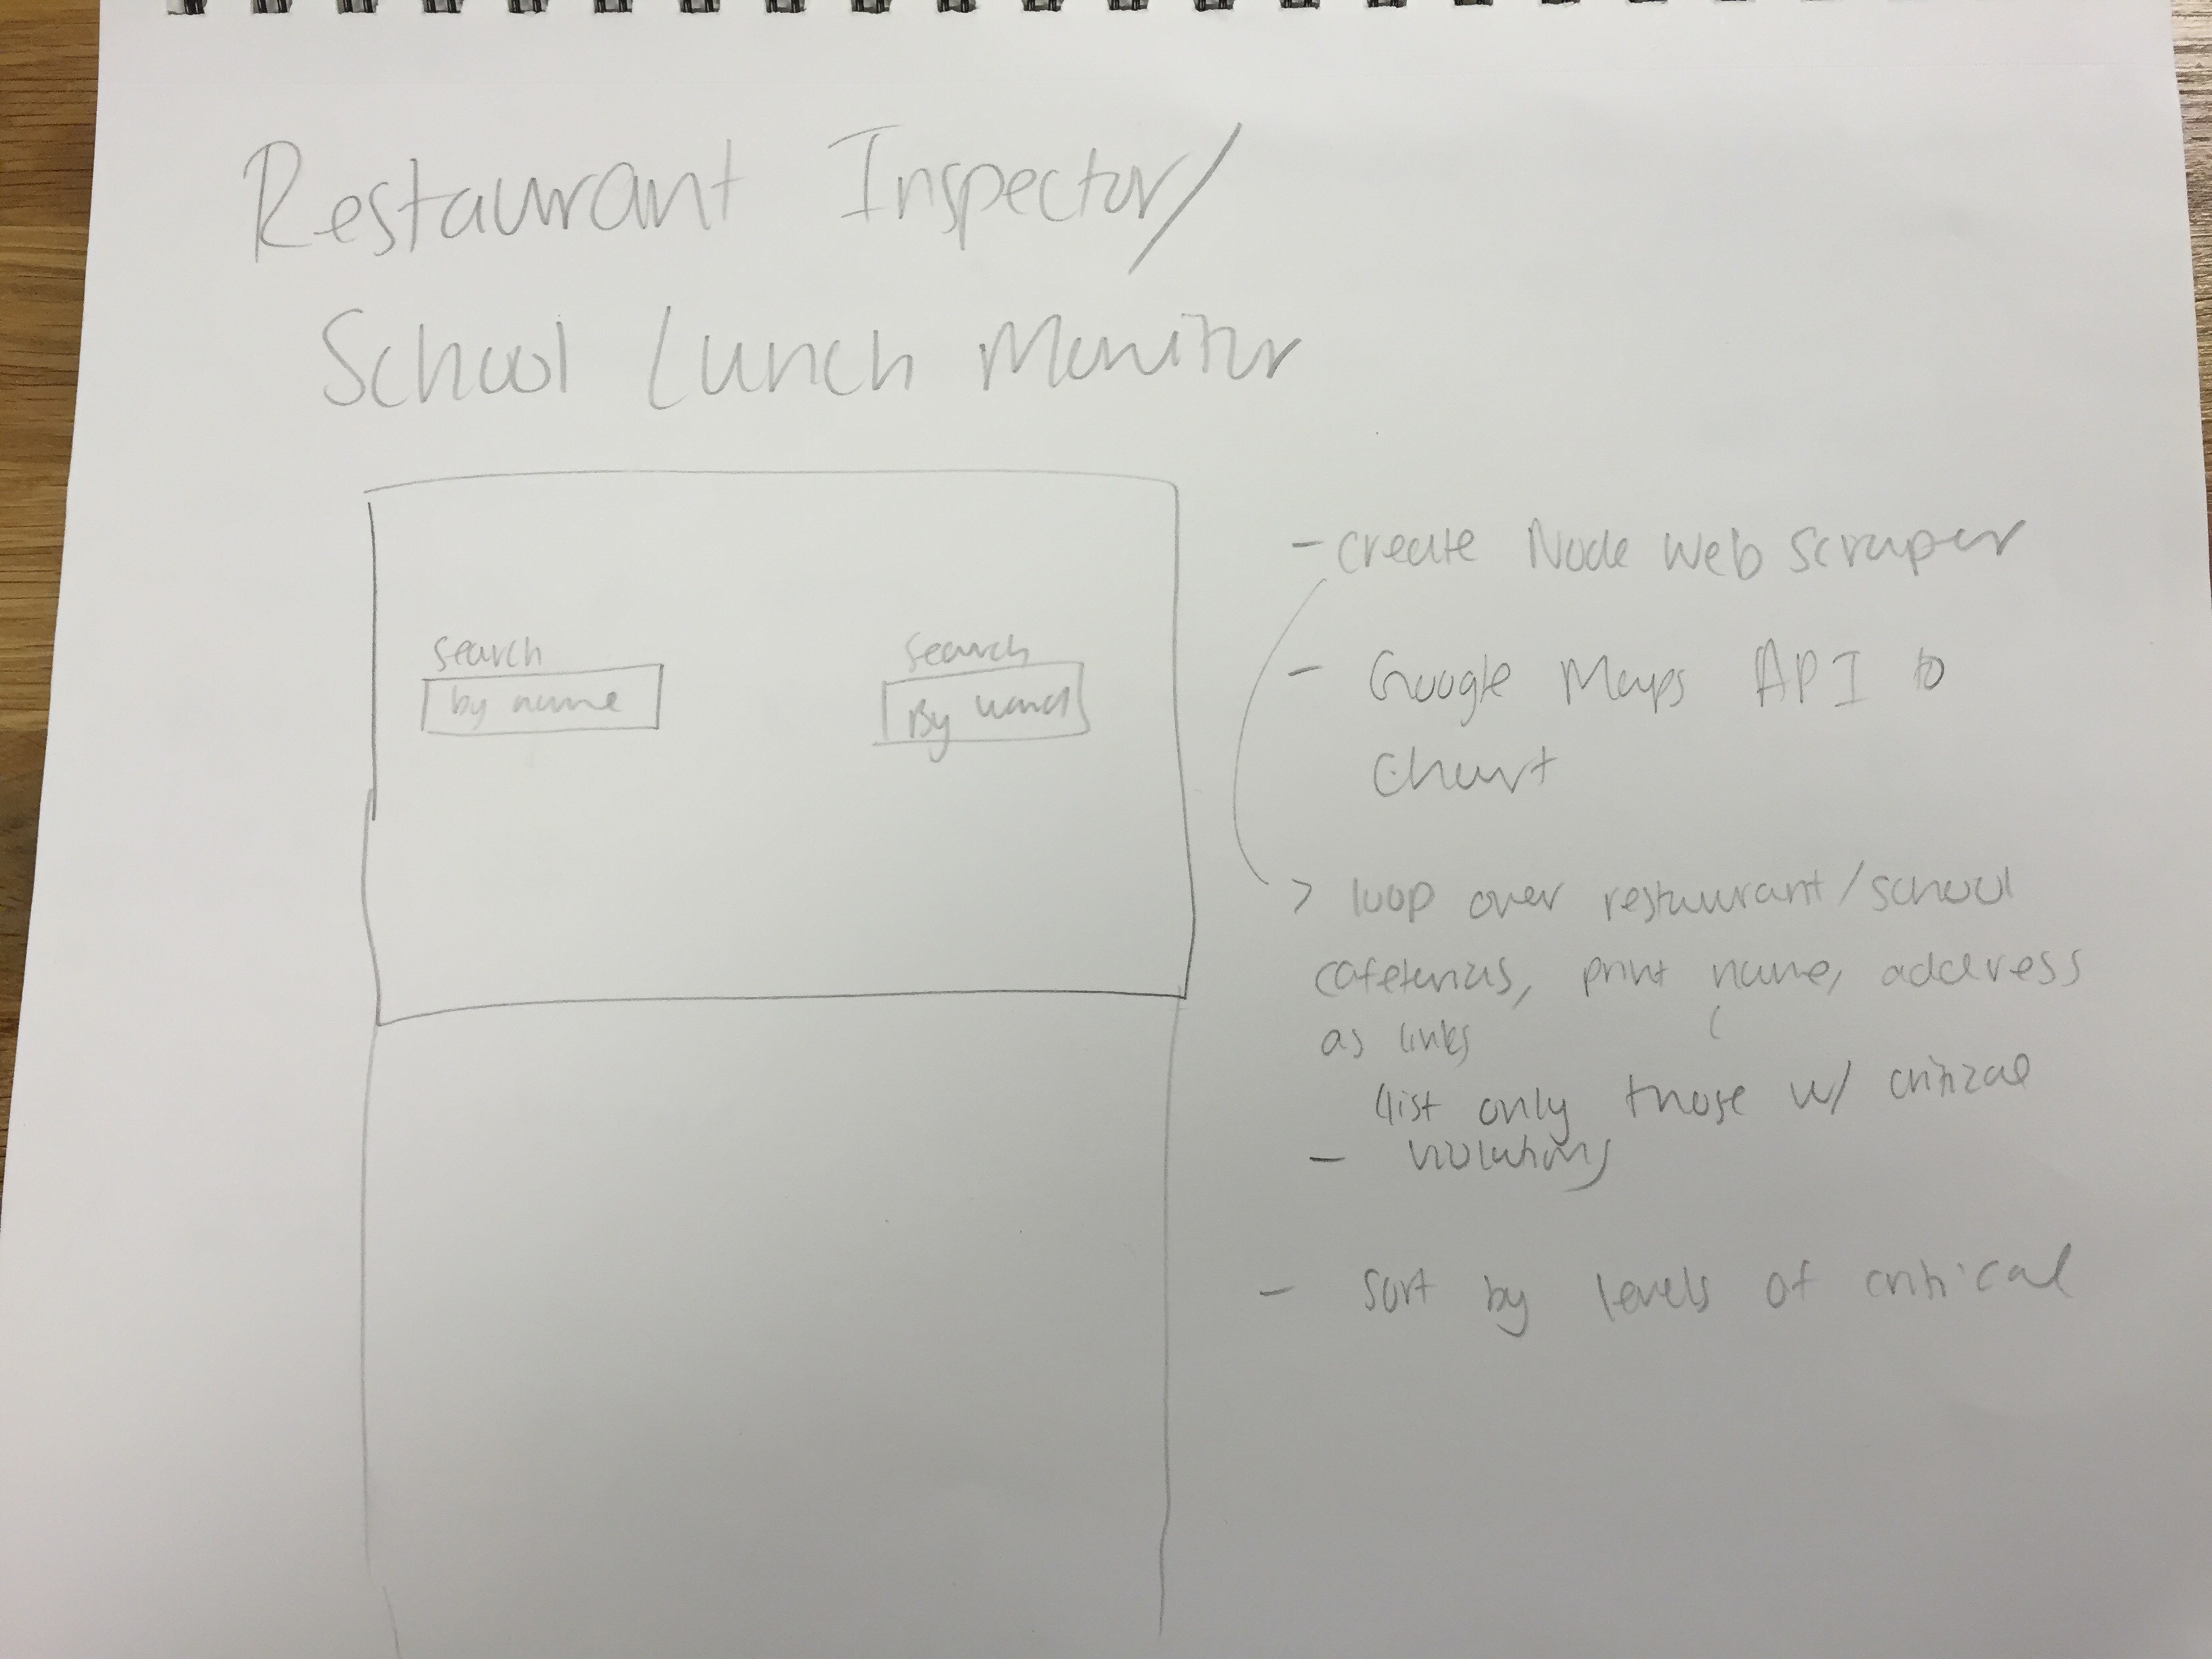 Restaurant Inspector/
School Lunch Monitor
search
by name
search
By ward
- create Node web scraper
- Google Maps API to
chart
> loop over restaurant/school
cafeterias, print name, address
as links
(list only those w/ critical
- violations
- sort by levels of critical